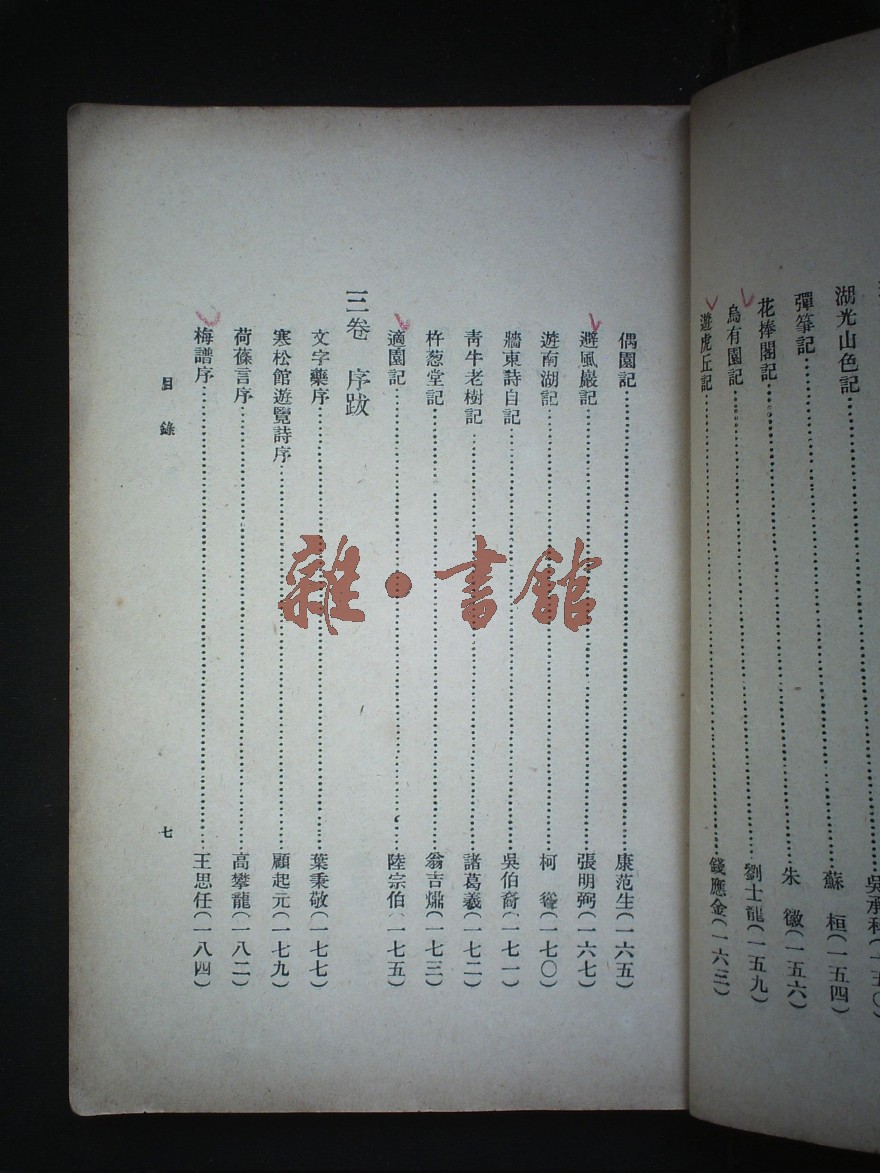 湖光山色記……吳承
彈箏記……蘇 桓(一五四)
花捧閣記……朱 徽(一五六)
烏有園記……劉士龍(一五九)
遊虎丘記……錢應金(一六三)
偶園記……康范生(一六五)
避風巖記……張明弼(一六七)
遊南湖記……柯 (一七〇)
牆東詩自記……吳伯裔(一七一)
靑牛老樹記……諸葛羲(一七二)
杵蔥堂記……翁吉㷍(一七三)
適園記……陸宗伯(一七五)
三卷 序跋
文字藥序……葉秉敬(一七七)
寒松館遊覽詩序……顧起元(一七九)
荷蓧言序……高攀龍(一八二)
梅譜序……王思任(一八四)
目錄
七
雜·書館